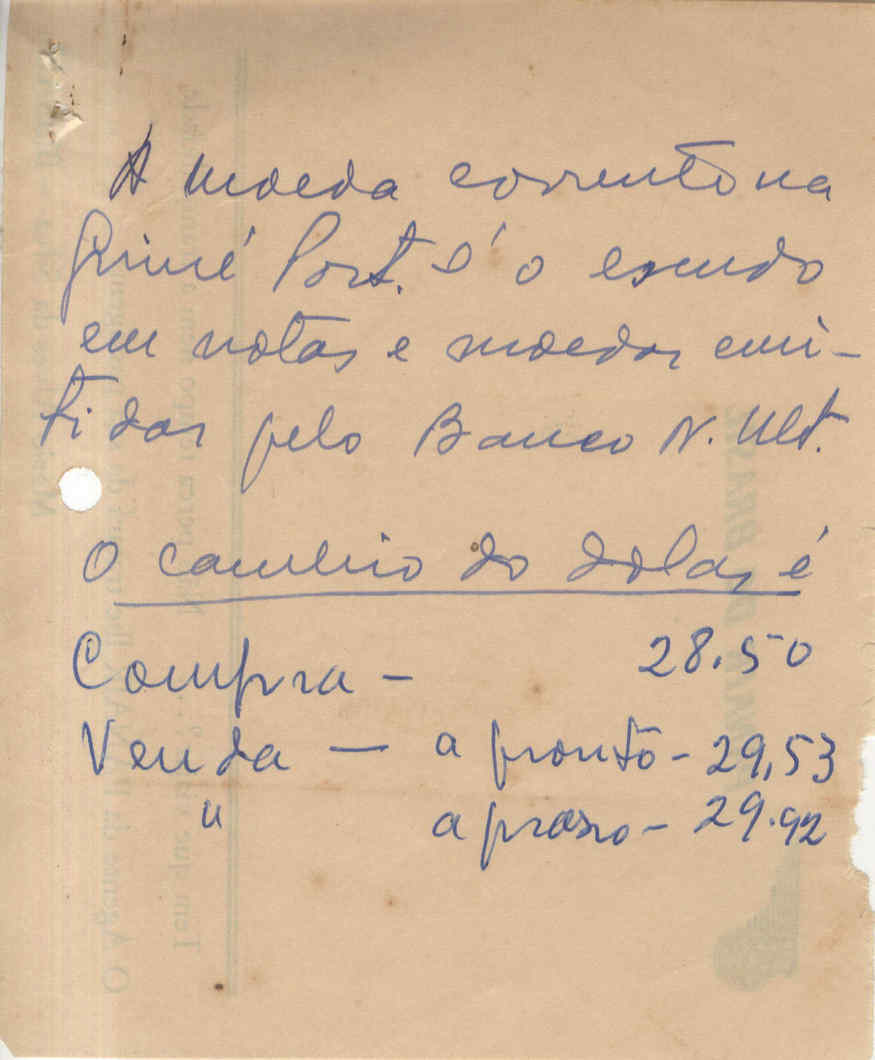 A moeda corrente na
Guiné Port. é o escudo
em notas e moedas emi-
tidas pelo Banco N. Ult.
O cambio do dolar é
Compra - 28.50
Venda - a pronto - 29,53
" a praso - 29.92